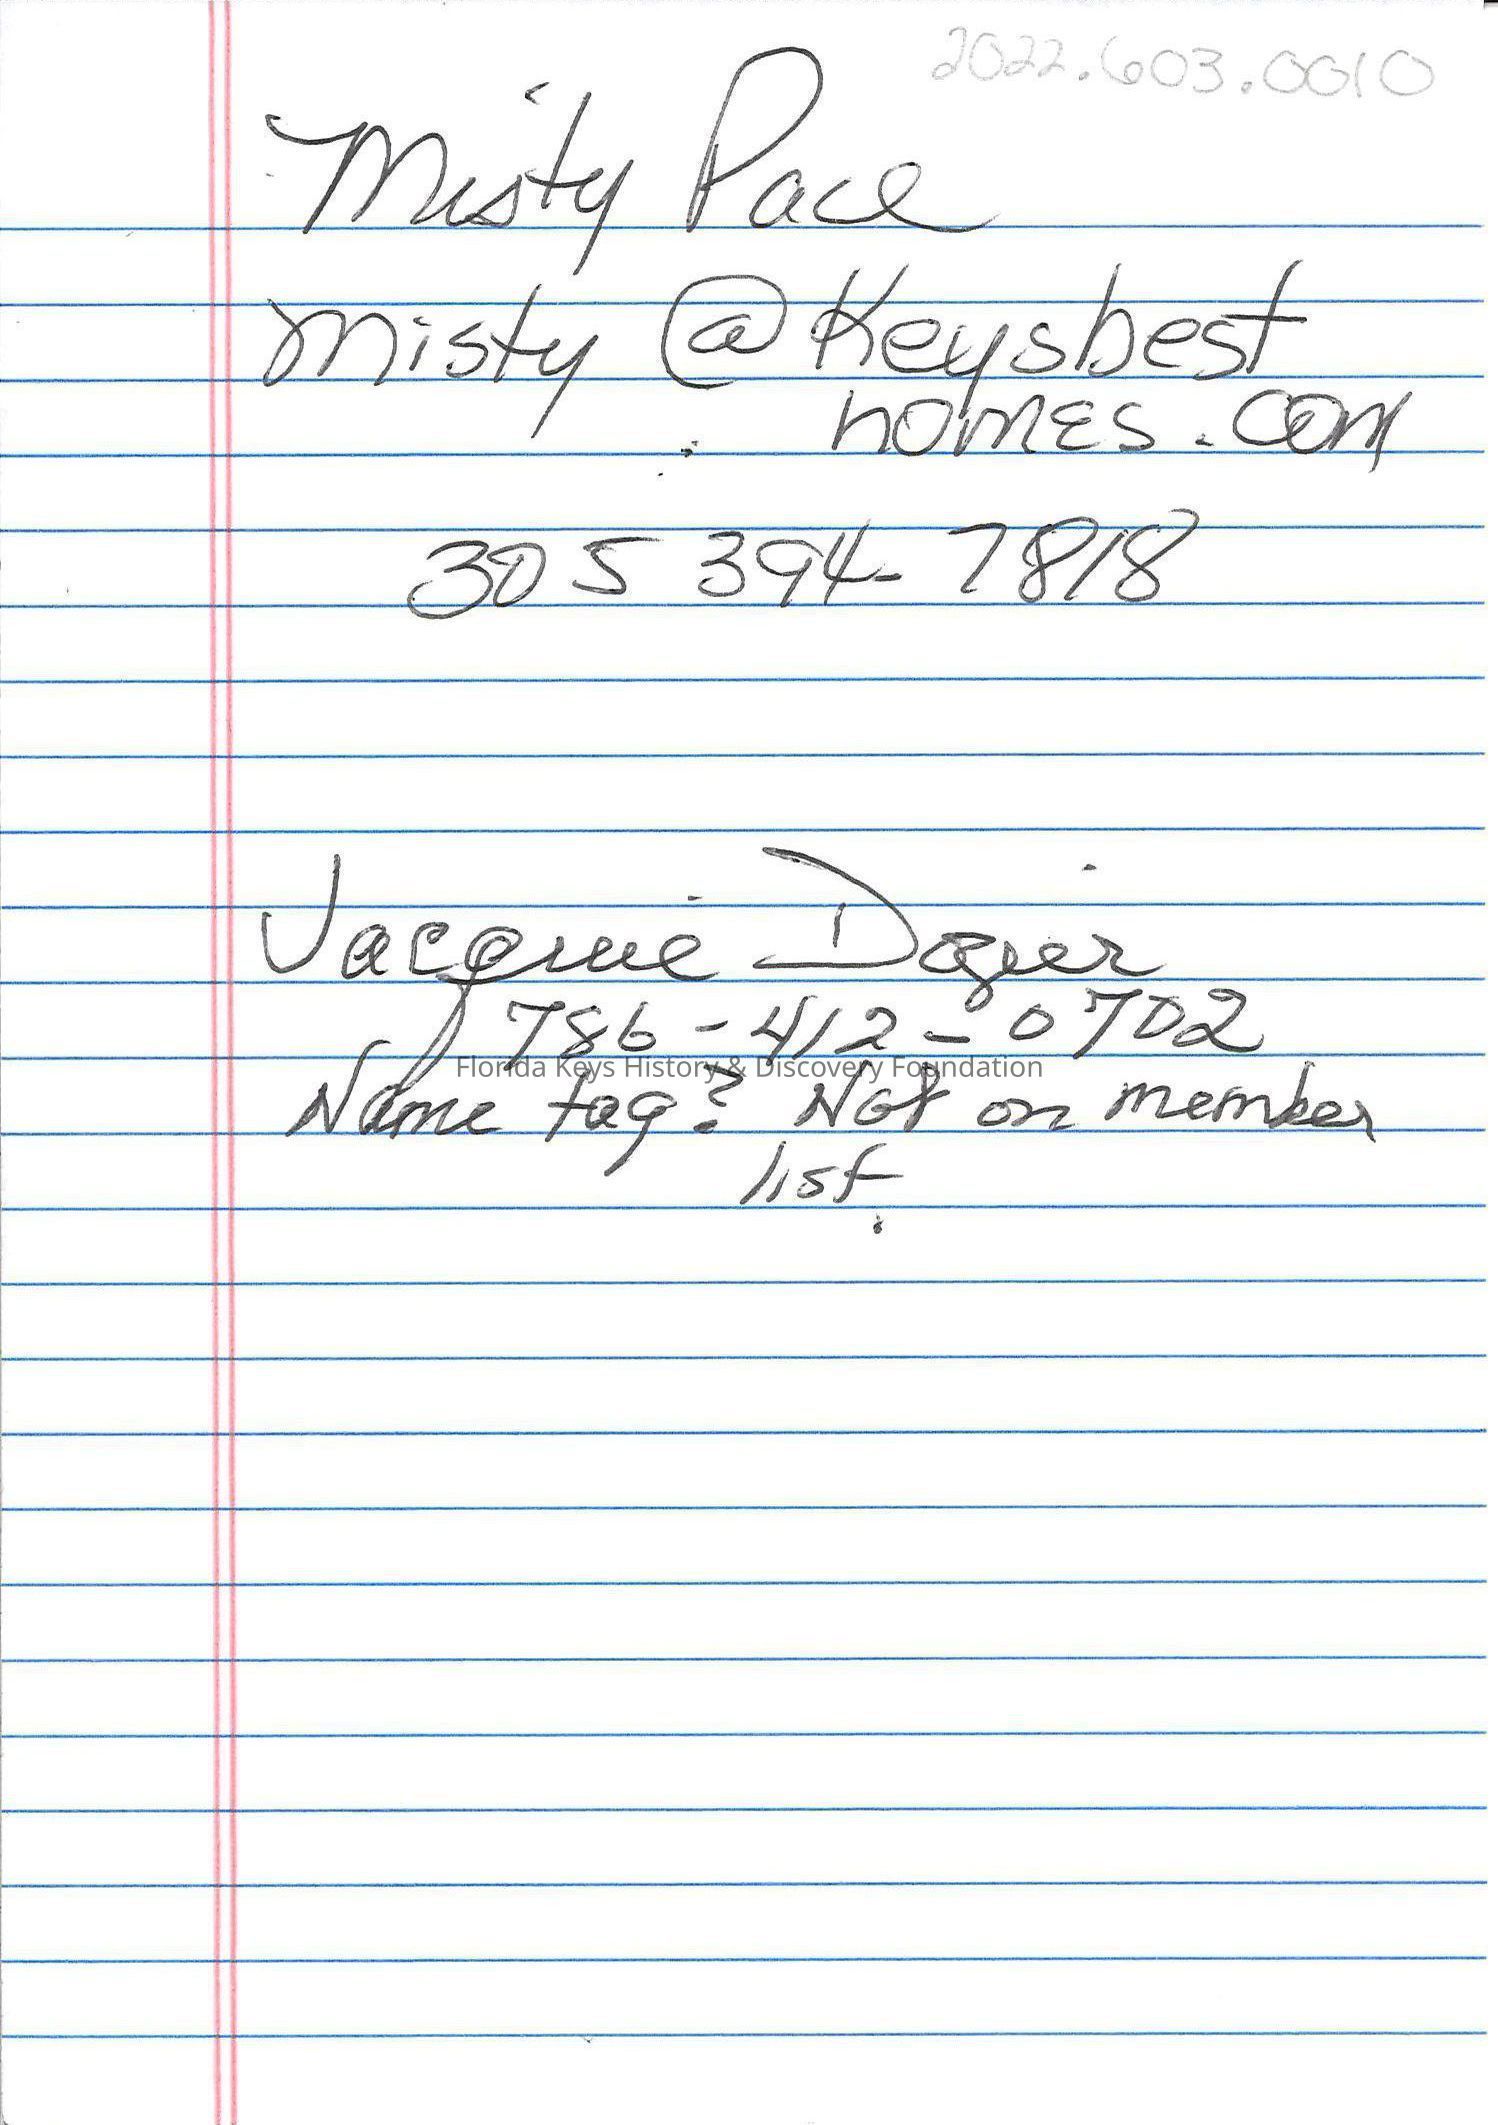 2022.603.0010
Misty Pace
Misty @ Keysbest
homes.com
305 394-7818
Jacquie Dozier
786-412-0702
Florida Keys History & Discovery Foundation
Name tag? Not on member
list